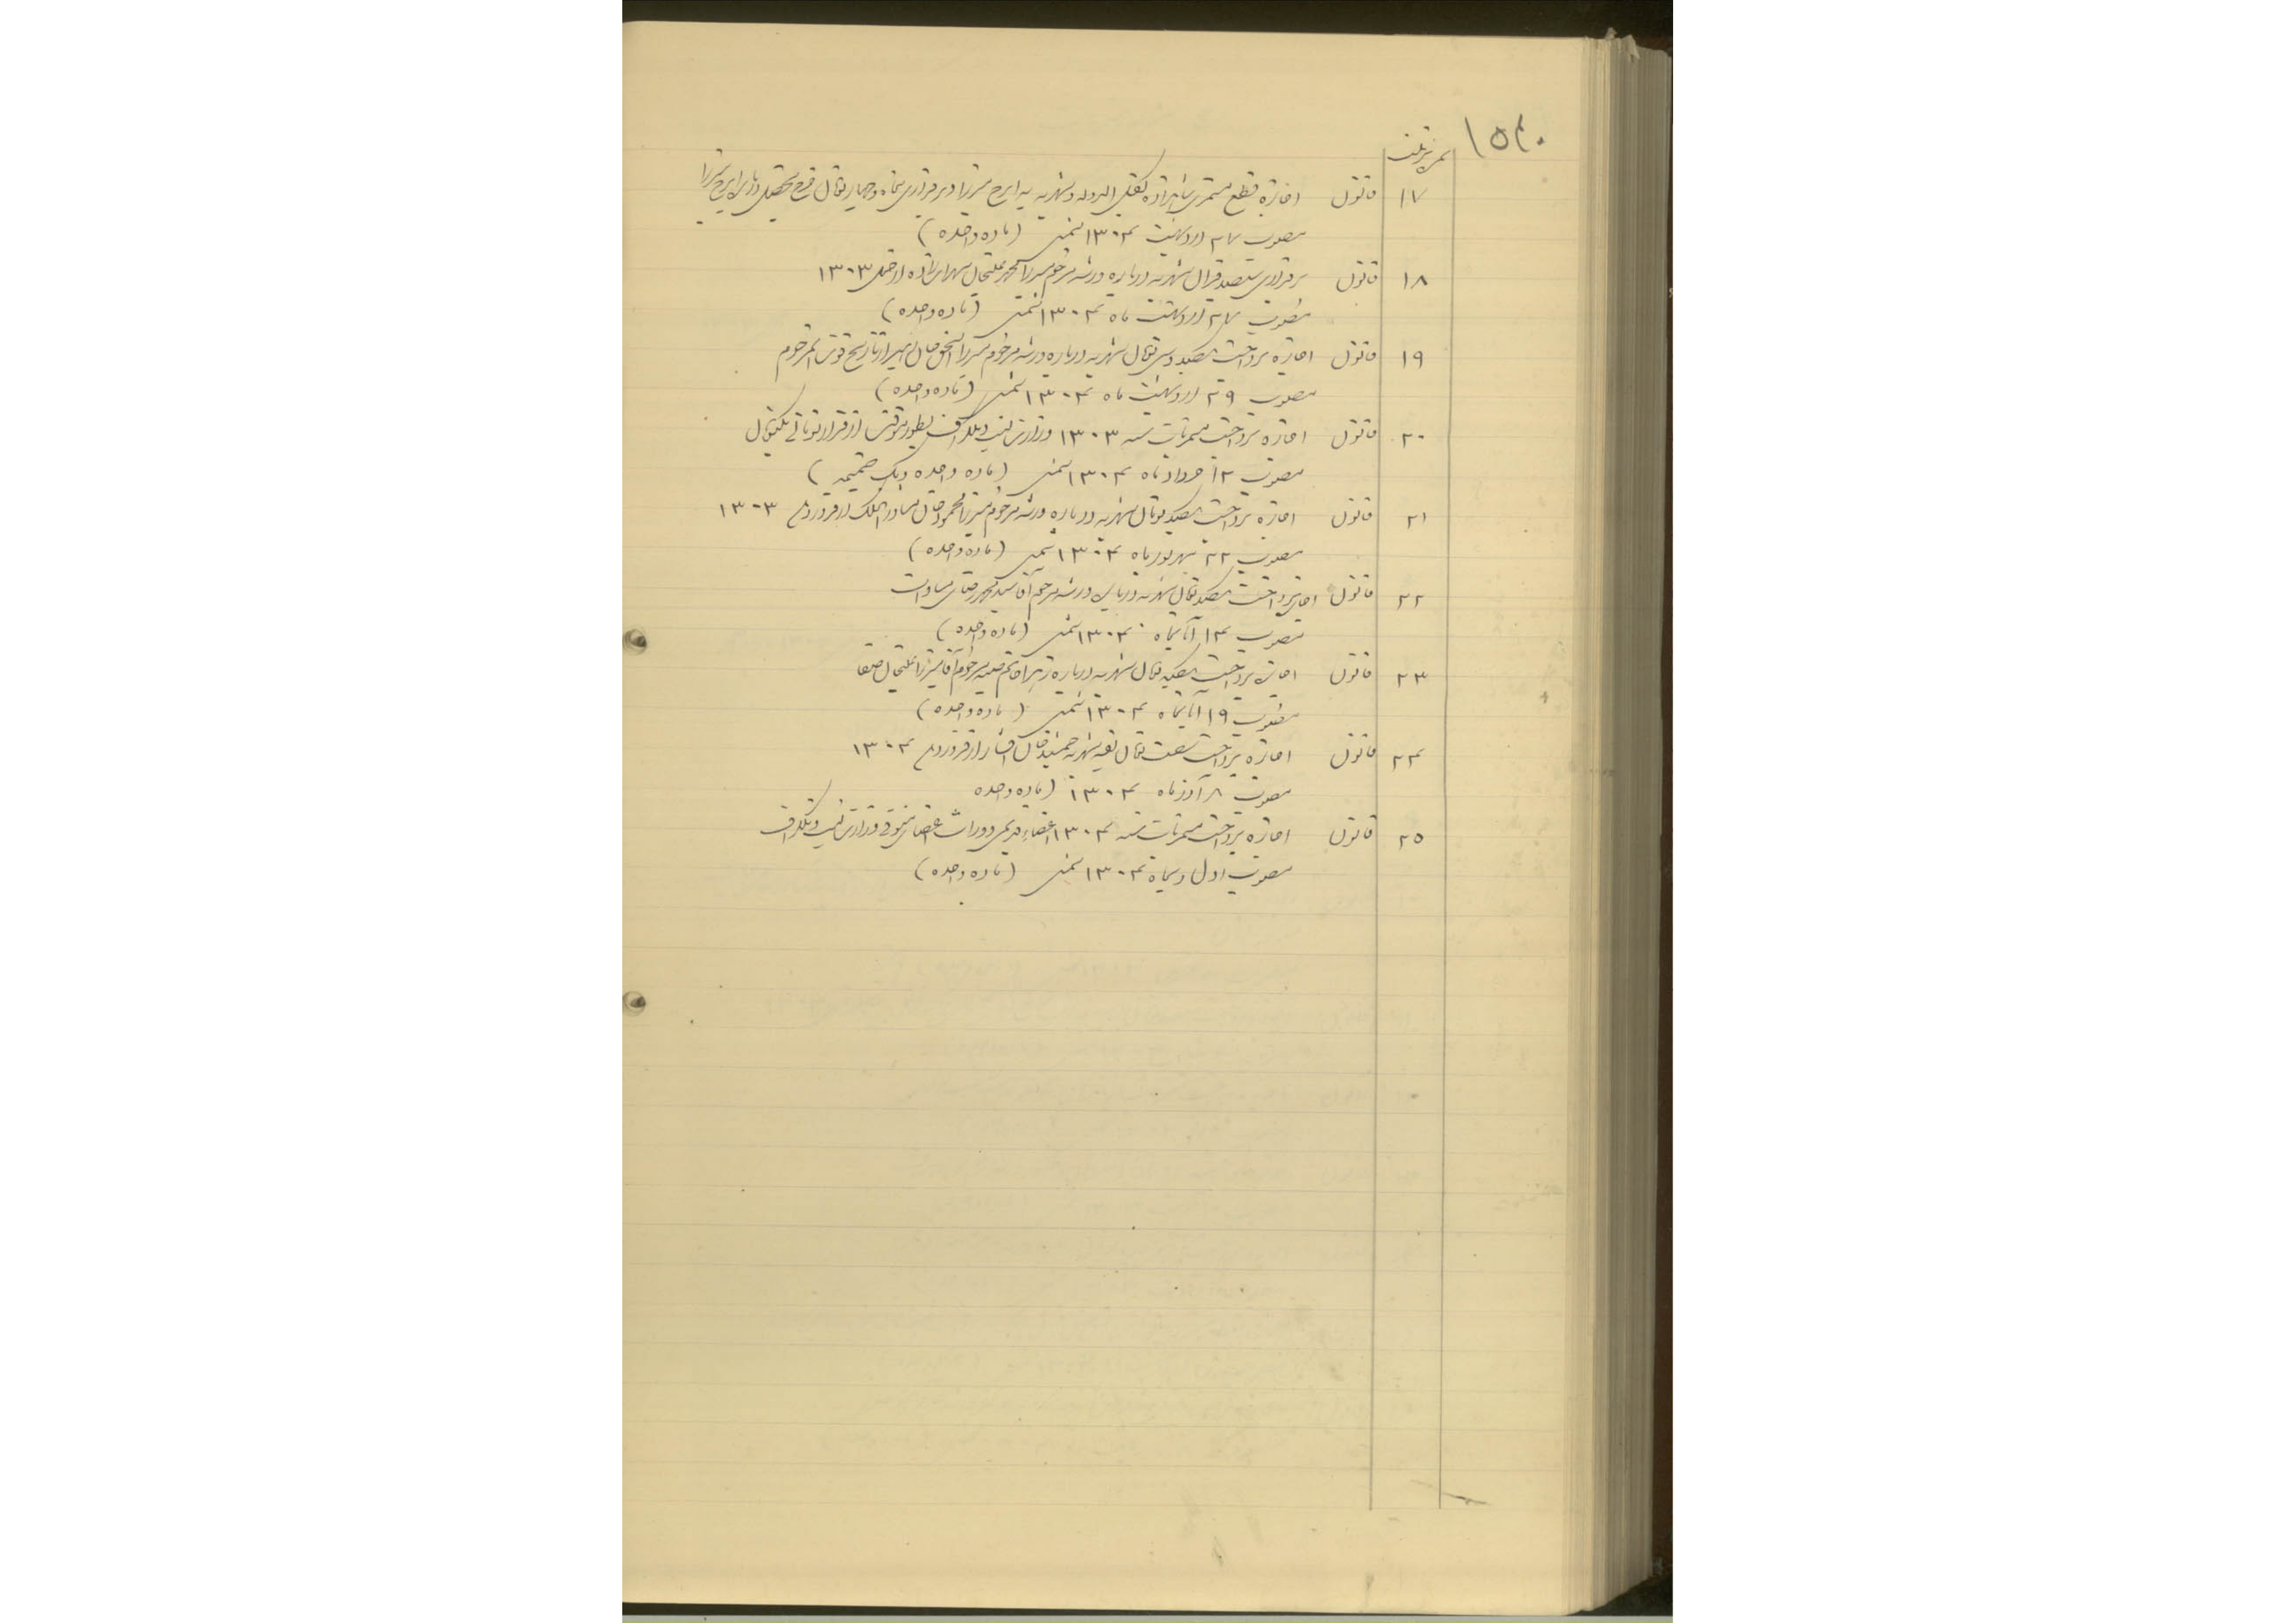 ۱۵۴۰
نمره ترتیب
۱۷ قانون اجازه قطع مستمری شاهزاده الدوله و شهریه ایرج میرزا و برقراری پنجاه و چهار تومان خرج تحصیل درباره ایرج میرزا
مصوب ۲۷ اردیبهشت ۱۳۰۴ شمسی (ماده واحده)
۱۸ قانون برقراری سیصد قران شهریه درباره ورثه مرحوم میرزا علیخان از ۱۳۰۳
مصوب ۲۷ اردیبهشت ماه ۱۳۰۴ شمسی (ماده واحده)
۱۹ قانون اجازه پرداخت یکصد و سی تومان شهریه درباره ورثه مرحوم میرزا اسحق خان از تاریخ فوت آنمرحوم
مصوب ۲۹ اردیبهشت ماه ۱۳۰۴ شمسی (ماده واحده)
۲۰ قانون اجازه پرداخت مستمریات سنه ۱۳۰۳ وزارت پست و تلگراف بطور موقت از قرار تومانی یکتومان
مصوب ۱۲ خرداد ماه ۱۳۰۴ شمسی (ماده واحده و یک ضمیمه)
۲۱ قانون اجازه پرداخت یکصد تومان شهریه درباره ورثه مرحوم میرزا محمود خان از فروردین ۱۳۰۳
مصوب ۲۲ شهریور ماه ۱۳۰۴ شمسی (ماده واحده)
۲۲ قانون اجازه پرداخت یکصد تومان شهریه درباره ورثه مرحوم آقا سید محمد رضای مساوات
مصوب ۱۴ آبانماه ۱۳۰۴ شمسی (ماده واحده)
۲۳ قانون اجازه پرداخت یکصد تومان شهریه درباره زهرا خانم صبیه مرحوم آقا میرزا علیخان صفا
مصوب ۱۹ آبانماه ۱۳۰۴ شمسی (ماده واحده)
۲۴ قانون اجازه پرداخت تومان بقیه شهریه جمشید خان افشار از فروردین ۱۳۰۴
مصوب ۸ آذرماه ۱۳۰۴ (ماده واحده
۲۵ قانون اجازه پرداخت مستمریات سنه ۱۳۰۴ اعضاء قدیمی و وراث اعضای متوفی وزارت پست و تلگراف
مصوب اول دیماه ۱۳۰۴ شمسی (ماده واحده)